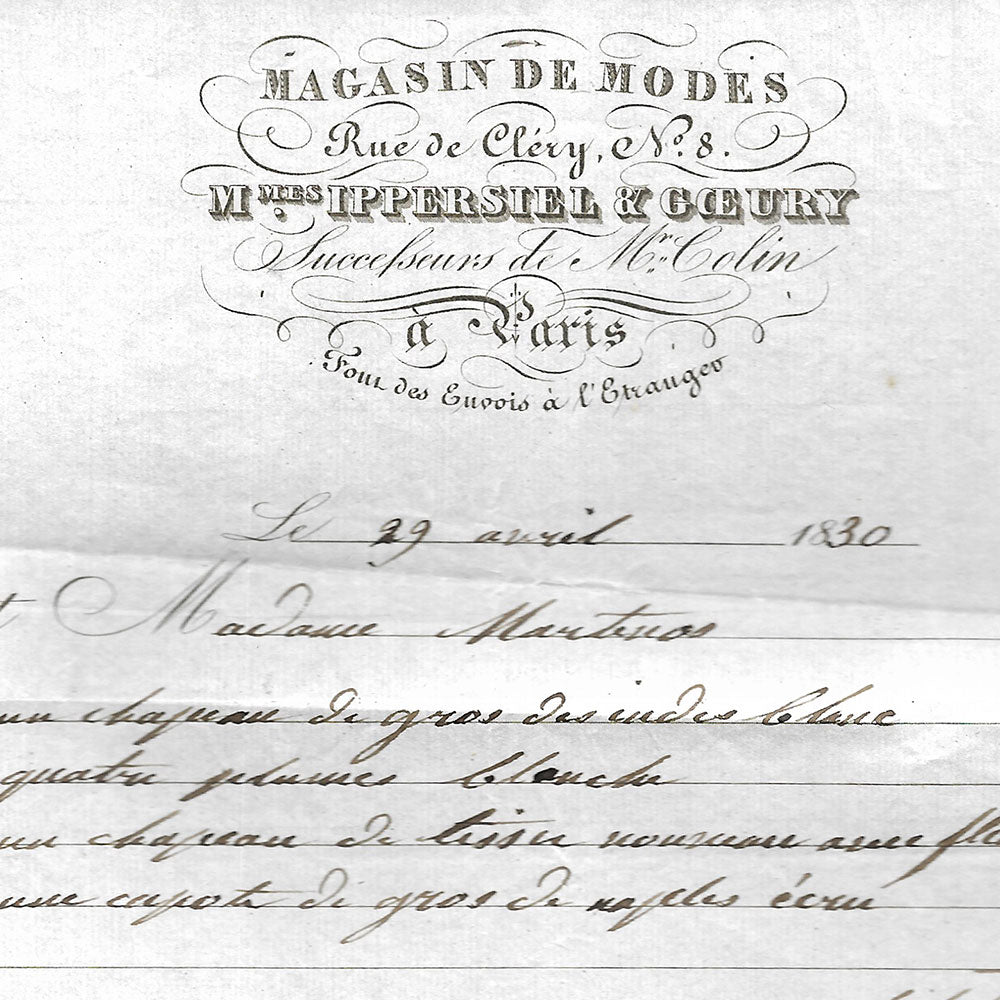 MAGASIN DE MODES
Rue de Cléry, N.º 8.
M.MES IPPERSIEL & GŒURY
Successeurs de M.r Colin
à Paris
Font des Envois à l'Etranger
Le 29 avril 1830
Madame Martinos
un chapeau de gros des indes blanc
quatre plumes blanche
un chapeau de tissu nouveau avec
une capote de gros de naples écru